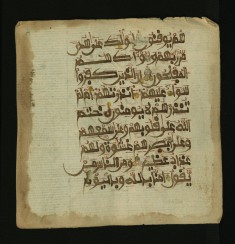 هم يوقنون اولئك على هدى من
ربهم واولئك هم
المفلحون ان الذين كفروا
سواء عليهم ءانذرتهم ام لم
تنذرهم لا يومنون ختم
الله على قلوبهم وعلى سمعهم
وعلى ابصرهم غشوة ولهم
عذاب عظيم ومن الناس من
يقول امنا بالله وباليوم